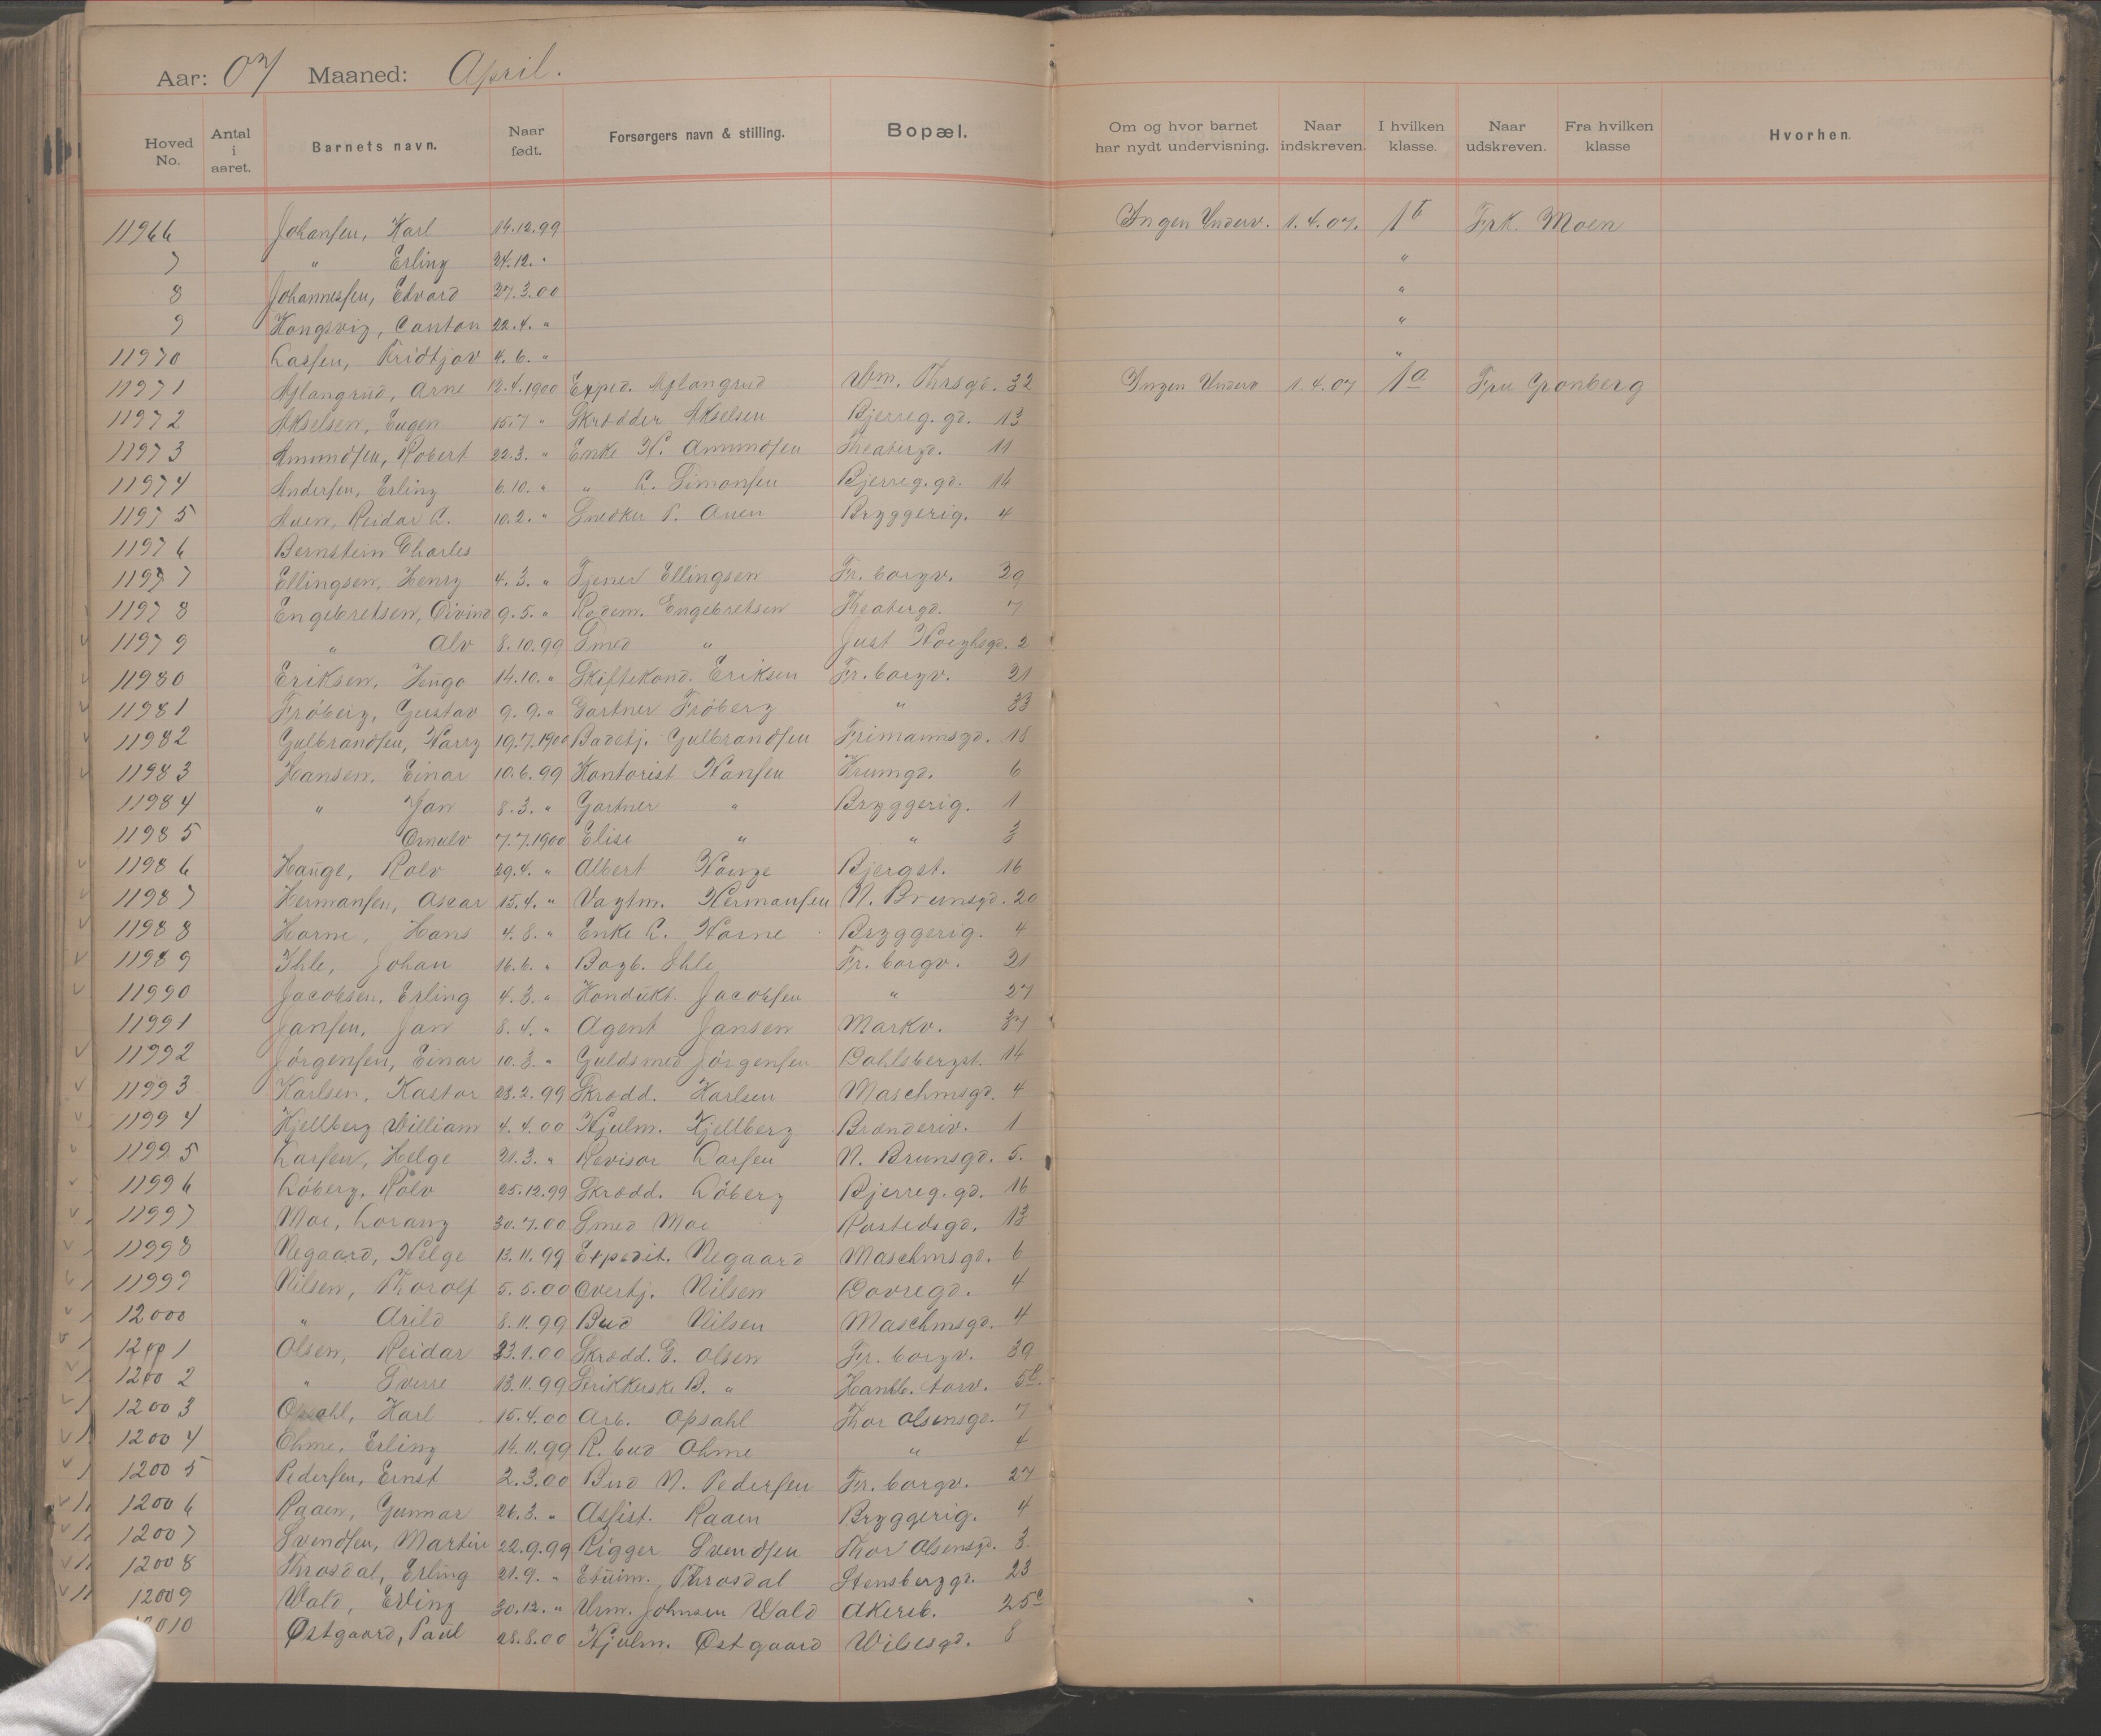 Aar: 07 Maaned: April.
Hoved No. Antal i aaret. Barnets navn. Naar født. Forsørgers navn & stilling. Bopæl. Om og hvor barnet har nydt undervisning. Naar indskreven. I hvilken klasse. Naar udskreven. Fra hvilken klasse Hvorhen.
11966 Johansen, Karl 14.12.99 Ingen Underv. 1.4.07. 1b Frk. Moen
7 " Erling 24.12. " "
8 Johannessen, Edvard 27.3.00 "
9 Kongsvig, Canton 22.4. " "
11970 Lassen, Fridtjov 4.6. " "
11971 Aslangrud, Arne 12.4.1900 Exped. Aslangrud Wm. Thrsgd. 32 Ingen Underv 1.4.07 1a Fru Grønberg
11972 Akselsen, Eugen 15.7 " Skrædder Akselsen Bjerreg. gd. 13
11973 Amundsen, Robert 22.3. " Enke H. Amundsen Theatergd. 11
11974 Andersen, Erling 6.10. " " L. Simonsen Bjerreg. gd. 14
11975 Auen, Reidar L. 10.2. " Snedker P. Auen Bryggerig. 4
11976 Bernstein Charles
11977 Ellingsen, Henry 4.3. " Tjener Ellingsen Fr. borgv. 39
11978 Engebretsen, Øivind 9.5. " Rodem. Engebretsen Theatergd. 7
11979 " Alv 8.10.99 Smed " Just Høeghsgd. 2
11980 Eriksen, Hugo 14.10. " Skiftekond. Eriksen Fr. borgv. 21
11981 Frøberg, Gustav 9.9. " Gartner Frøberg " 33
11982 Gulbrandsen, Harry 19.7.1900 Badetj. Gulbrandsen Frimannsgd. 18
11983 Hansen, Einar 10.6.99 Kontorist Hansen Krumgd. 6
11984 " Jan 8.3. " Gartner " Bryggerig. 1
11985 Ornulv 7.7.1900 Elise " " 3
11986 Hauge, Rolv 29.4. " Albert Hauge Bjergst. 16
11987 Hermansen, Oscar 15.4. " Vagtm. Hermansen N. Brunsgd. 20
11988 Horne, Hans 4.8. " Enke L. Horne Bryggerig. 4
11989 Ihle, Johan 16.6. " Bogb. Ihle Fr. borgv. 21
11990 Jacobsen, Erling 4.3. " Kondukt. Jacobsen " 27
11991 Jansen, Jan 8.4. " Agent Jansen Markv. 37
11992 Jørgensen, Einar 10.3. " Guldsmed Jørgensen Dahlsbergst. 14
11993 Karlsen, Kastor 28.2.99 Skrædd. Karlsen Maschmsgd. 4
11994 Kjellberg William 4.4.00 Hjulm. Kjellberg Brænderiv. 1
11995 Larsen, Helge 21.3. " Revisor Larsen N. Brunsgd. 5.
11996 Løberg, Rolv 25.12.99 Skrædd. Løberg Bjerreg. gd. 16
11997 Moe, Lorang 30.7.00 Smed Moe Rostedsgd. 13
11998 Negaard, Helge 13.11.99 Expedit. Negaard Maschmsgd. 6
11999 Nilsen, Thorolf 5.5.00 Overtj. Nilsen Dovregd. 4
12000 " Arild 8.11.99 Bud Nilsen Maschmsgd. 4
12001 Olsen, Reidar 23.1.00 Skrædd. G. Olsen Fr. borgv. 39
12002 " Sverre 13.11.99 Strikkerske B. " Hamb. torv. 5b.
12003 Opsahl, Karl 15.4.00 Arb. Opsahl Thor Olsensgd. 7
12004 Ohme, Erling 14.11.99 R. bud Ohme " 4
12005 Pedersen, Ernst 2.3.00 Bud N. Pedersen Fr. borgv. 27
12006 Raaen, Gunnar 26.3. " Assist. Raaen Bryggerig. 4
12007 Svendsen, Martin 22.9.99 Rigger Svendsen Thor Olsensgd. 3
12008 Throsdal, Erling 21.9. " Etuim. Throsdal Stensberggd. 23
12009 Wald, Erling 30.12. " Urm. Johnsen Wald Akersb. 25c
12010 Østgaard, Paul 28.8.00 Hjulm. Østgaard Wilsesgd. 8